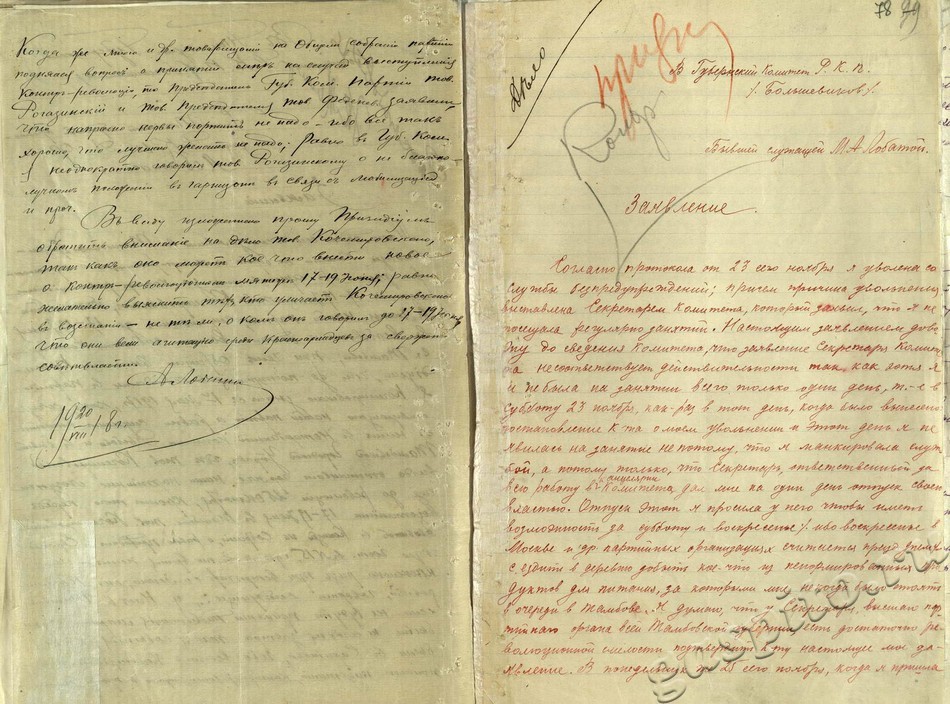 Когда же мной и др. товарищами на общем собрании партии
поднялся вопрос о принятии мер на случай выступления
контр-революции, то Председатель Губ. Ком. Партии тов.
Рогазинский и тов. Председателя тов Федоров заявили
что напрасно нервы портить не надо – ибо все так
хорошо, что лучшего желать не надо; Равно в Губ. Коми.
я неоднократно говорил тов Рогазинскому о не благопо-
лучном положении в гарнизоне в связи съ мобилизацией
и проч.
Въ виду изложенного прошу Президиум
обратить внимание на дело тов Кочетировского,
так какъ оно может кое что внести новое
о контр-революционном мятеже 17-19 июня; равно
желательно выяснить
в возстании – не те ли, о комъ онъ говорил до 17-19 июня
что они вели агитацию среди красноармейцев за свержение
совет
А Лотин
19 20/VIII 18 г
78
99
Дело
В Губернский Комитет Р. К. П.
/ Большевиков /.
Бывшей служащей М. А. Лобатой.
Заявление.
Согласно протокола от 23 сего ноября я уволена со
службы без предупреждений; причем причина увольнения
выставлена Секретарем Комитета, который заявил, что я не
посещала регулярно занятий. Настоящим заявлением дово-
жу до сведения Комитета, что заявление Секретаря Комите-
та несоответствует действительности так, как хотя я
и не была на занятии всего только один день, т.-е в
субботу 23 ноября, как-раз в тот день, когда было вынесено
постановление К-та о моем увольнении и этот день я не
явилась на занятие не потому, что я манкировала служ-
бой, а потому только, что Секретарь, ответственной за
всю работу в канцелярии Комитета, дал мне на один день отпуск своей
властью. Отпуск этот я просила у него чтобы иметь
возможность за субботу и воскресенье /. ибо воскресенье в
Москве и др партийных организациях считается празд.
съездить в деревню добыть кое-что из ненормированных про-
дуктов для питания, за которыми мне некогда было стоять
в очереди в Тамбове. Я думаю, что у Секретаря, высшаго пар-
тийнаго органа всей Тамбовской губернии есть достаточно ре-
волюционной смелости подтвердить К-ту настоящее мое за-
явление. В понедельник 25 сего ноября, когда я пришла